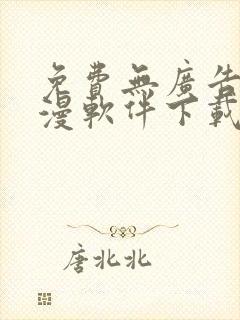 免費無廣告
漫軟件下載
唐北北